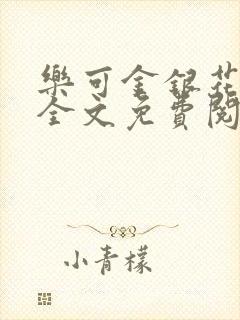 樂可金銀花
全文免費閱
小青檬